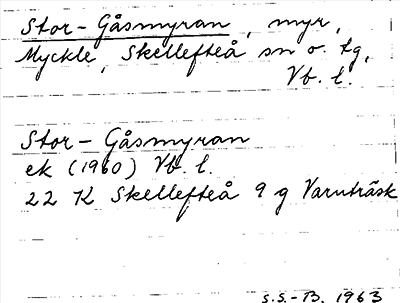 Stor-Gåsmyran, myr,
Myckle, Skellefteå sn o. tg,
Vb. l.
Stor-Gåsmyran
ek (1960) Vb. l.
22 K Skellefteå 9 g Varuträsk
S.S.-B. 1963